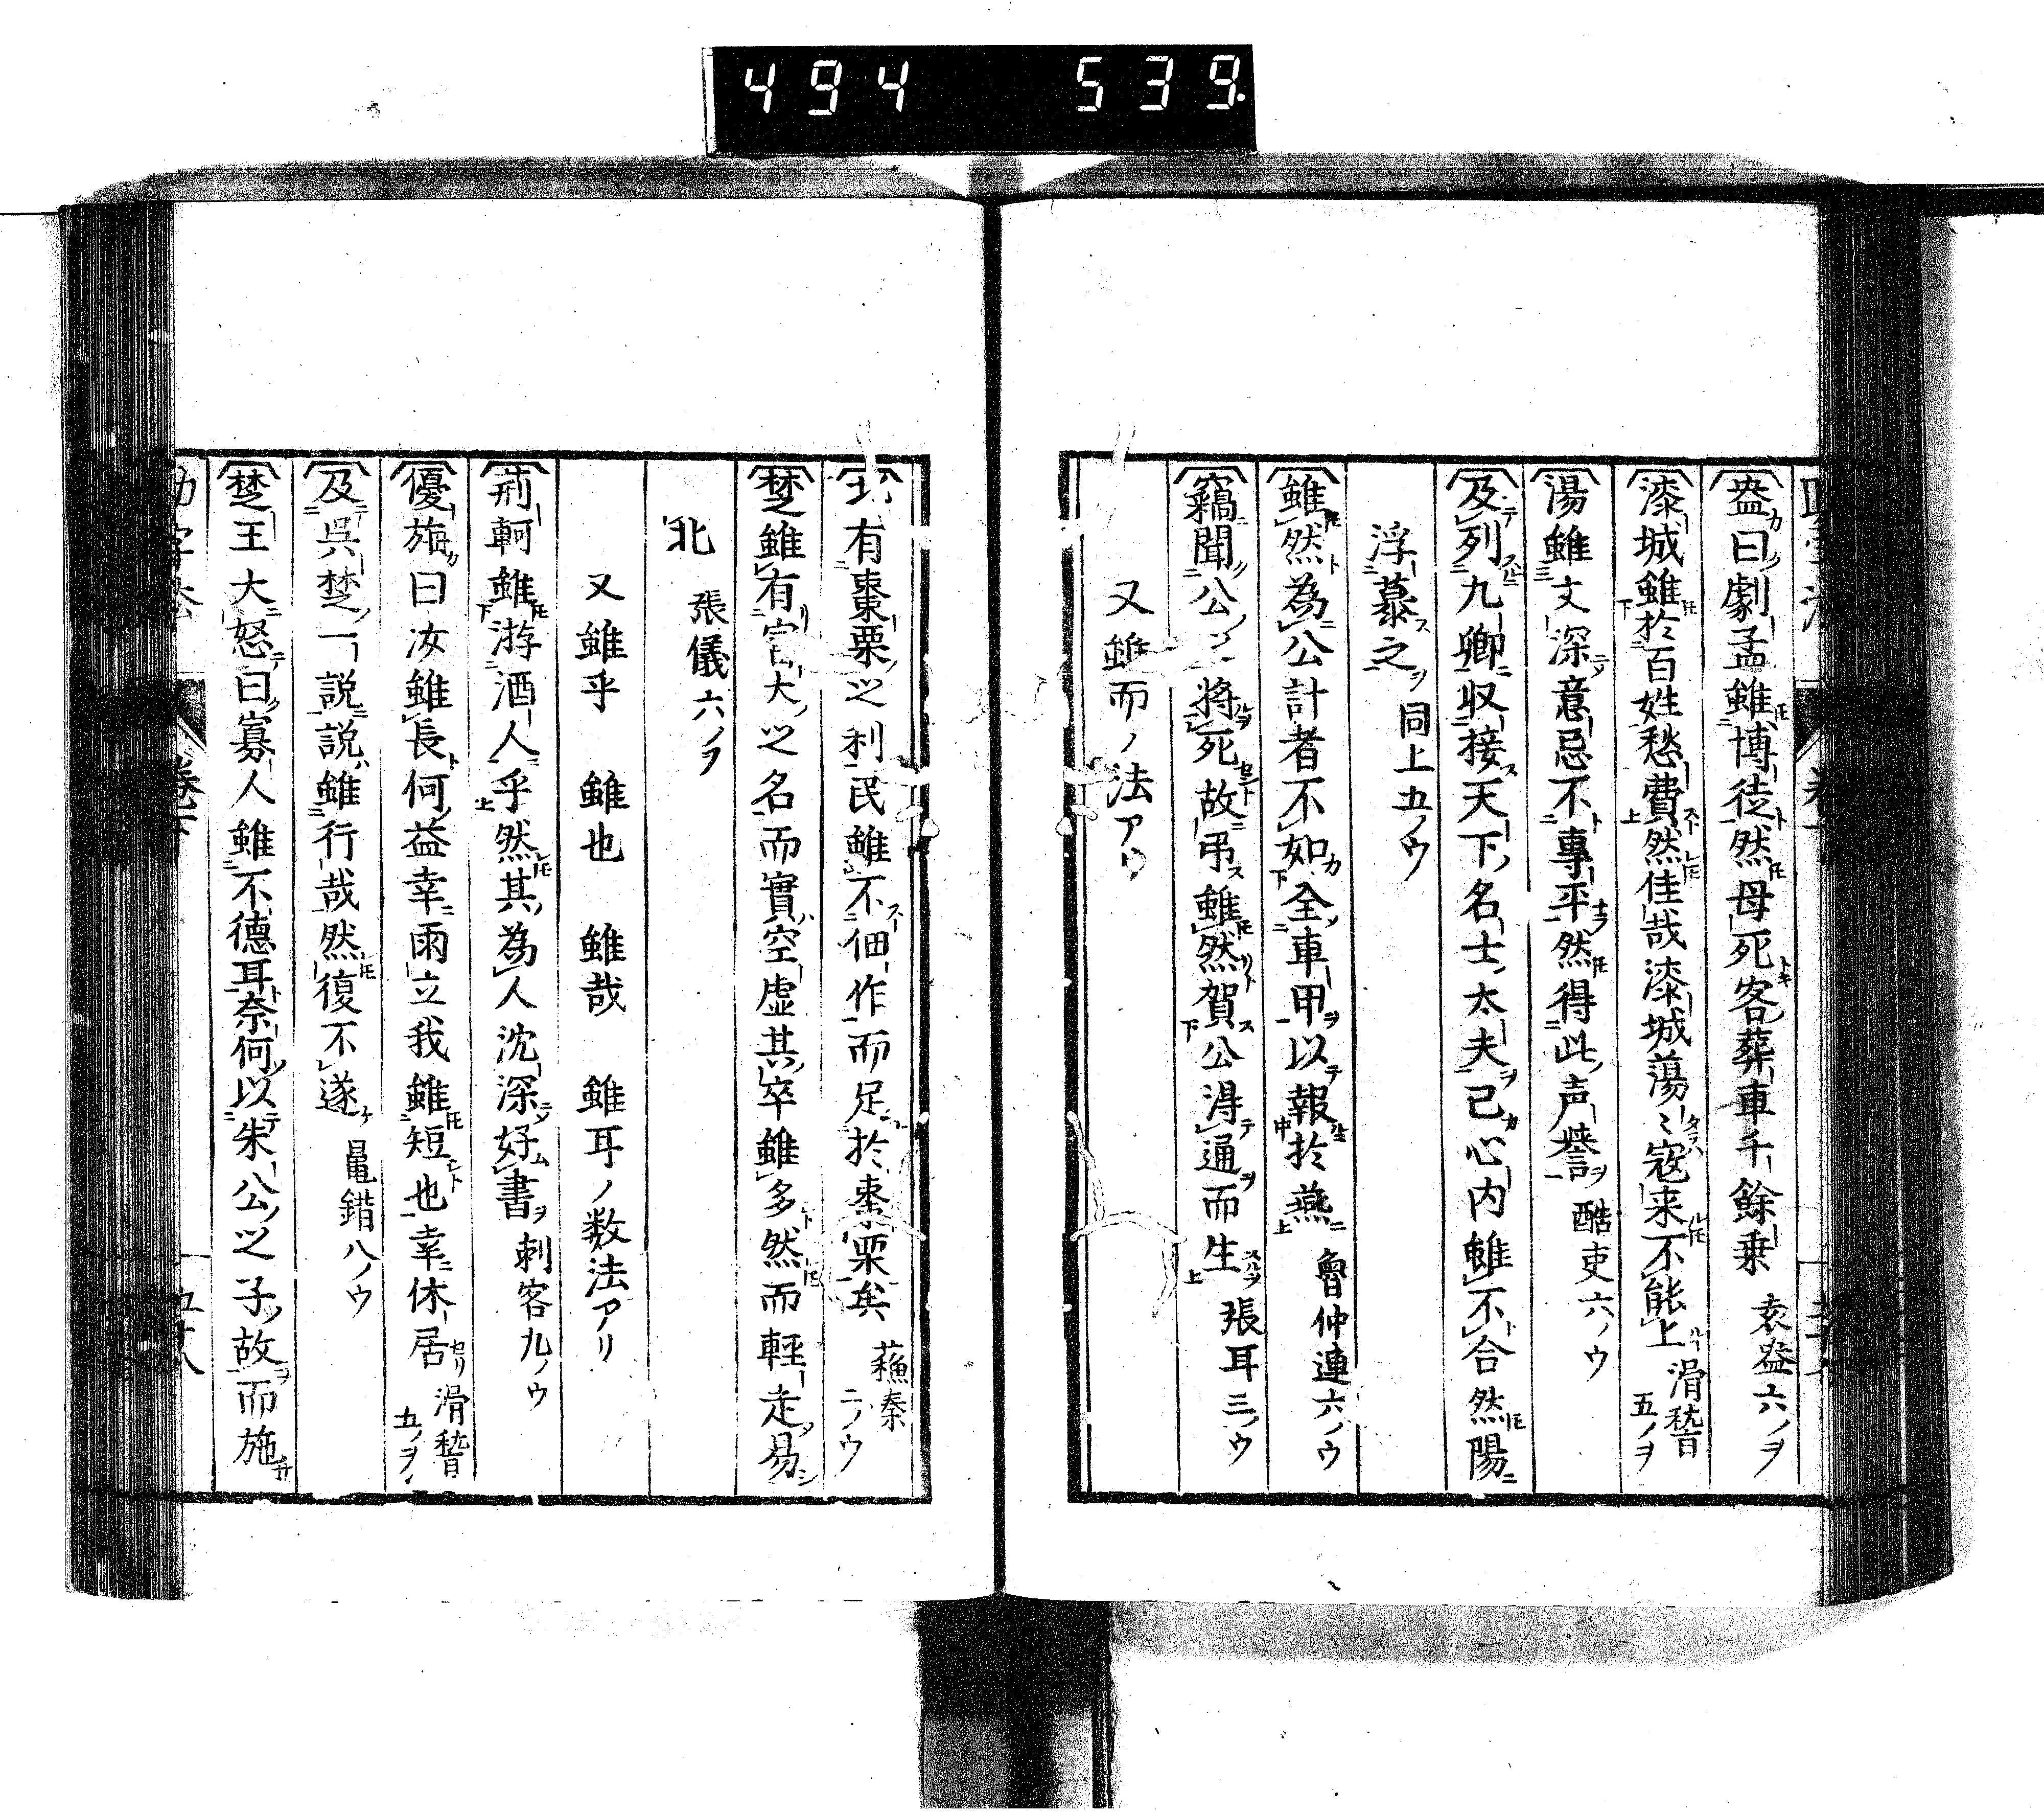 494 539.
盎曰劇孟雖博徒然母死客葬車千餘乗 袁盎六ノヲ
漆城雖於百姓愁費然佳哉漆城蕩〻寇来不能上 滑稽五ノヲ
湯雖文深意忌不專平然得此声譽 酷吏六ノウ
及列九卿収接天下名士太夫己心内雖不合然陽
浮慕之 同上五ノウ
雖然為公計者不如全車甲以報於燕 魯仲連六ノウ
竊聞公之将死故弔雖然賀公得通而生 張耳三ノウ
又雖而ノ法アリ
北有棗栗之利民雖不佃作而足於棗栗矣 蘓秦二ノウ
楚雖有富大之名而實空虚其卒雖多然而輕走易
北 張儀六ノヲ
又雖乎 雖也 雖哉 雖耳ノ数法アリ
荊軻雖游酒人乎然其為人沈深好書 刺客九ノウ
優旃曰汝雖長何益幸雨立我雖短也幸休居 滑稽五ノヲ
及呉楚一説説雖行哉然復不遂 鼂錯八ノウ
楚王大怒曰寡人雖不德耳奈何以朱公之子故而施
助字法 卷下 五十八